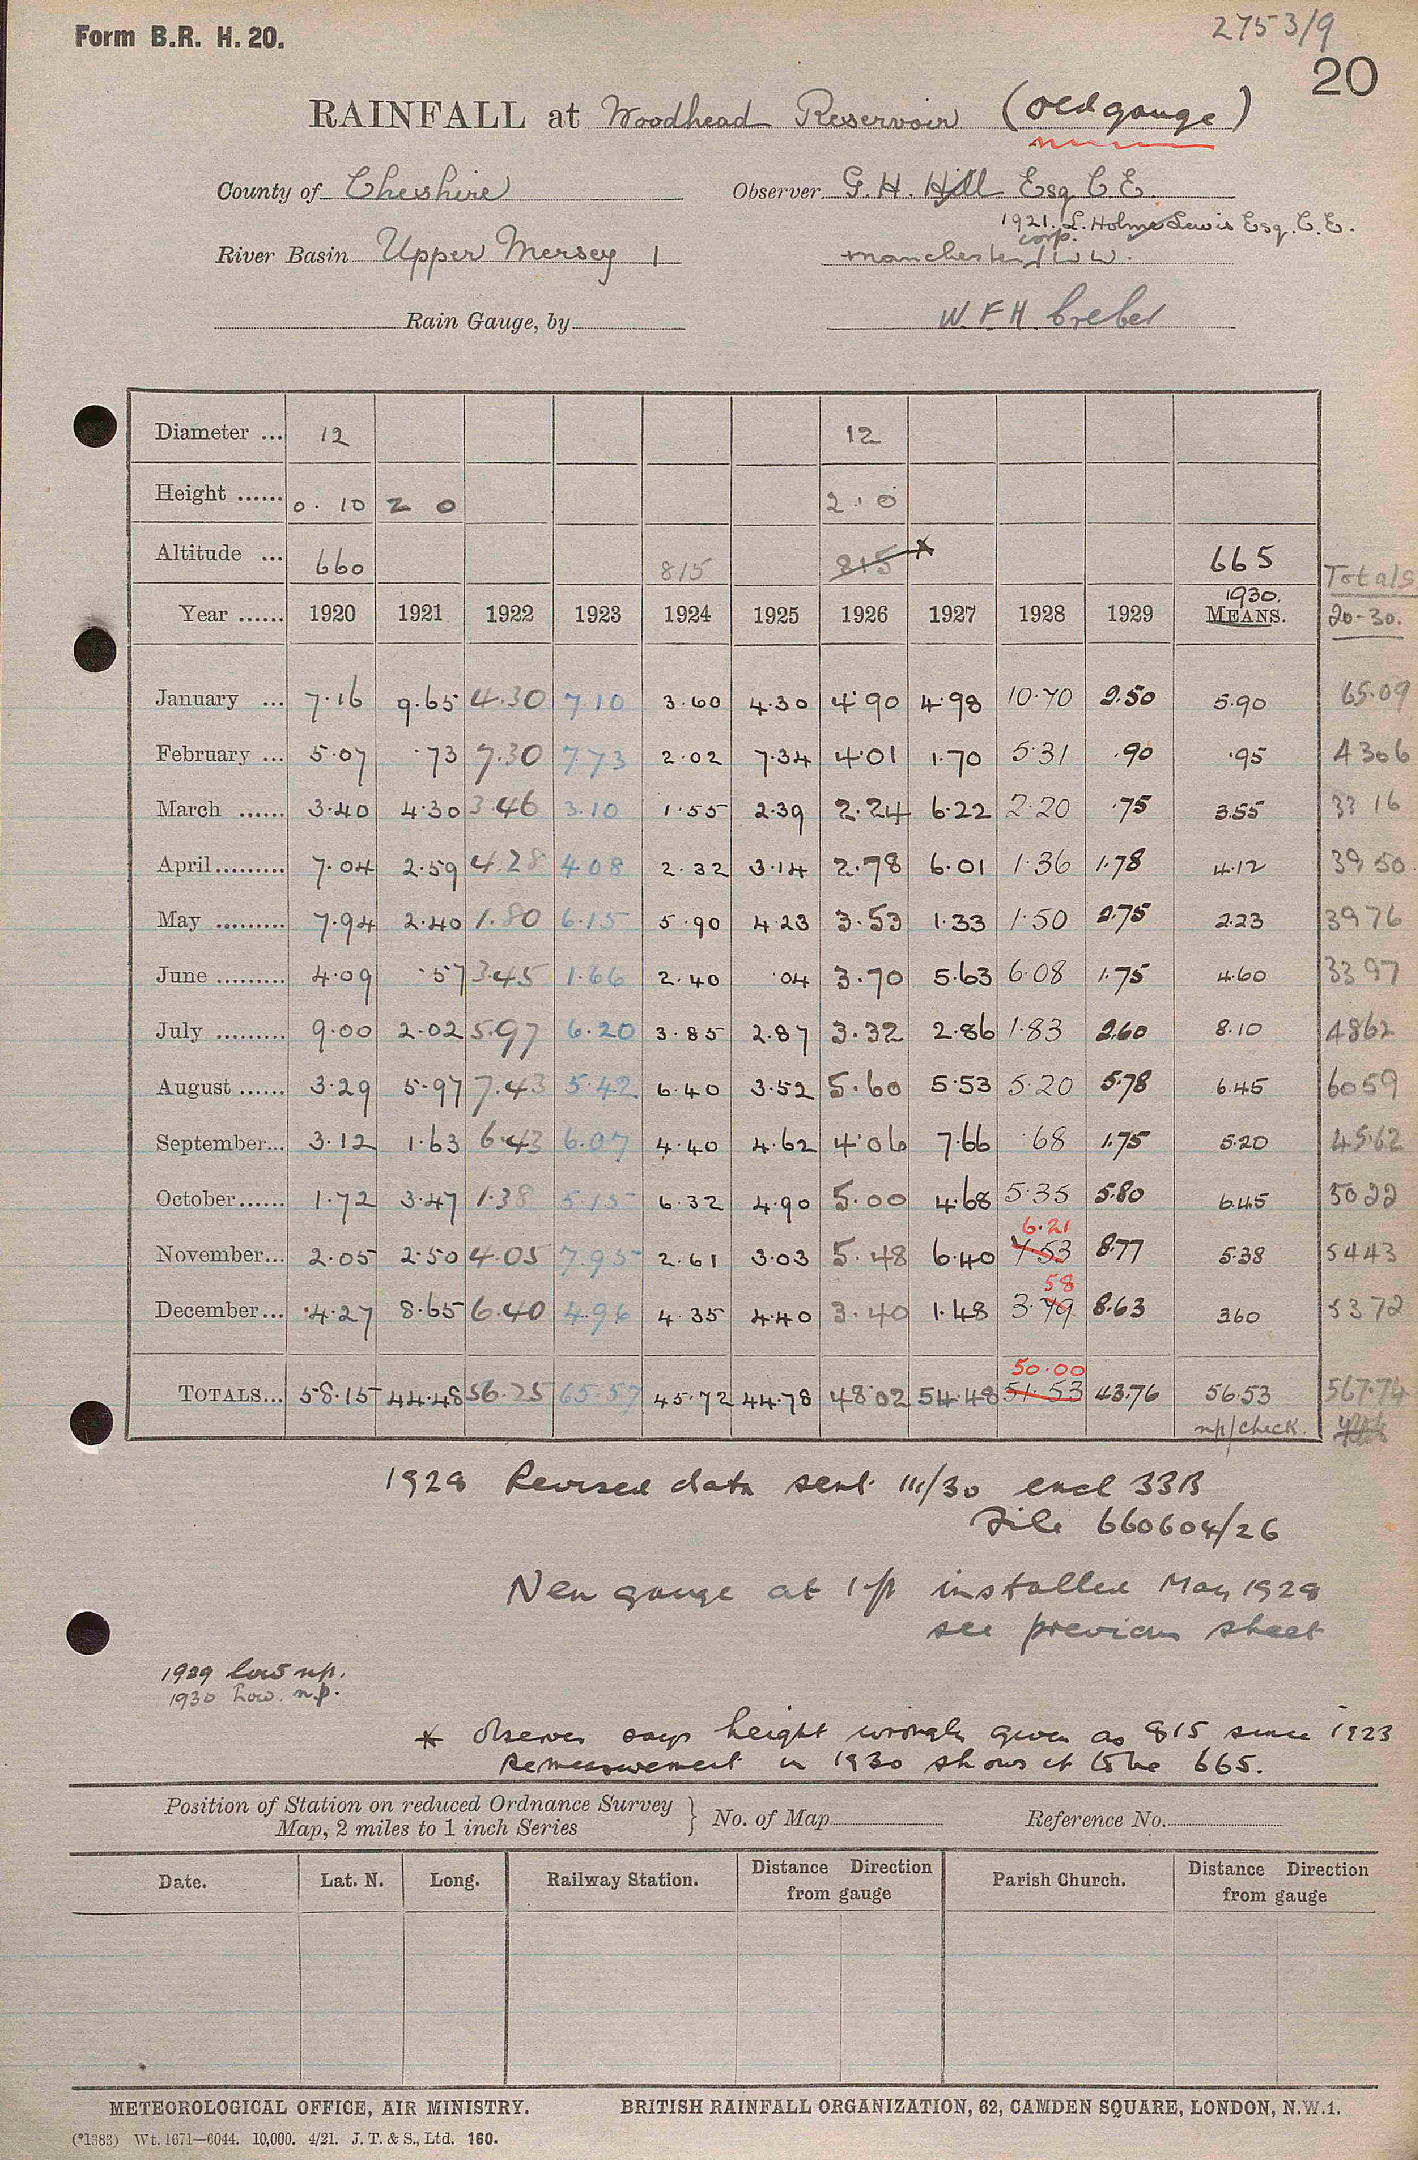 Form B.R. H. 20.
2753/9
20
RAINFALL at Woodhead Reservoir (old gauge)
County of Cheshire Observer G. H. Hill Esq C.E.
1921. L. Holme Lewis Esq. C.E.
River Basin Upper Mersey 1 Manchester corp. W W.
Rain Gauge, by W F H Creber
Diameter ... 12 12
Height ...... 0. 10 2 0 2.0
Altitude ... 660 815 815 * 665
Totals
Year ...... 1920 1921 1922 1923 1924 1925 1926 1927 1928 1929 1930. MEANS. 20-30.
January ... 7.16 9.65 4.30 7.10 3.60 4.30 4.90 4.98 10.70 2.50 5.90 65.09
February ... 5.07 .73 7.30 7.73 2.02 7.34 4.01 1.70 5.31 .90 .95 43 06
March ...... 3.40 4.30 3.46 3.10 1.55 2.39 2.24 6.22 2.20 .75 3.55 33 16
April......... 7.04 2.59 4.28 4.08 2.32 3.14 2.78 6.01 1.36 1.78 4.12 39 50
May ......... 7.94 2.40 1.80 6.15 5.90 4.23 3.53 1.33 1.50 2.75 2.23 39 76
June ......... 4.09 .57 3.45 1.66 2.40 .04 3.70 5.63 6.08 1.75 4.60 33 97
July ......... 9.00 2.02 5.97 6.20 3.85 2.87 3.32 2.86 1.83 2.60 8.10 48 62
August ...... 3.29 5.97 7.43 5.42 6.40 3.52 5.60 5.53 5.20 5.78 6.45 60 59
September... 3.12 1.63 6.43 6.07 4.40 4.62 4.06 7.66 .68 1.75 5.20 45.62
October...... 1.72 3.47 1.38 5.15 6.32 4.90 5.00 4.68 5.35 5.80 6.45 50 22
6.21
November... 2.05 2.50 4.05 7.95 2.61 3.03 5.48 6.40 7.53 8.77 5.38 54 43
58
December... 4.27 8.65 6.40 4.96 4.35 4.40 3.40 1.48 3.79 8.63 3.60 53 72
50.00
TOTALS... 58.15 44.48 56.25 65.57 45.72 44.78 48.02 54.48 51.53 43.76 56.53 567.74
np/check.
1928 Revised data sent 111/30 encl 33B
File 660604/26
New gauge at 1 ft installed May 1928
see previous sheet
1929 low np.
1930 low. n.p.
* observer says height wrongly given as 815 since 1923
Remeasurement in 1930 shows it to be 665.
Position of Station on reduced Ordnance Survey
Map, 2 miles to 1 inch Series } No. of Map Reference No.
Date. Lat. N. Long. Railway Station. Distance Direction from gauge Parish Church. Distance Direction from gauge
METEOROLOGICAL OFFICE, AIR MINISTRY. BRITISH RAINFALL ORGANIZATION, 62, CAMDEN SQUARE, LONDON, N.W.1.
(*1383) Wt. 1671—6044. 10,000. 4/21. J. T. & S., Ltd. 160.